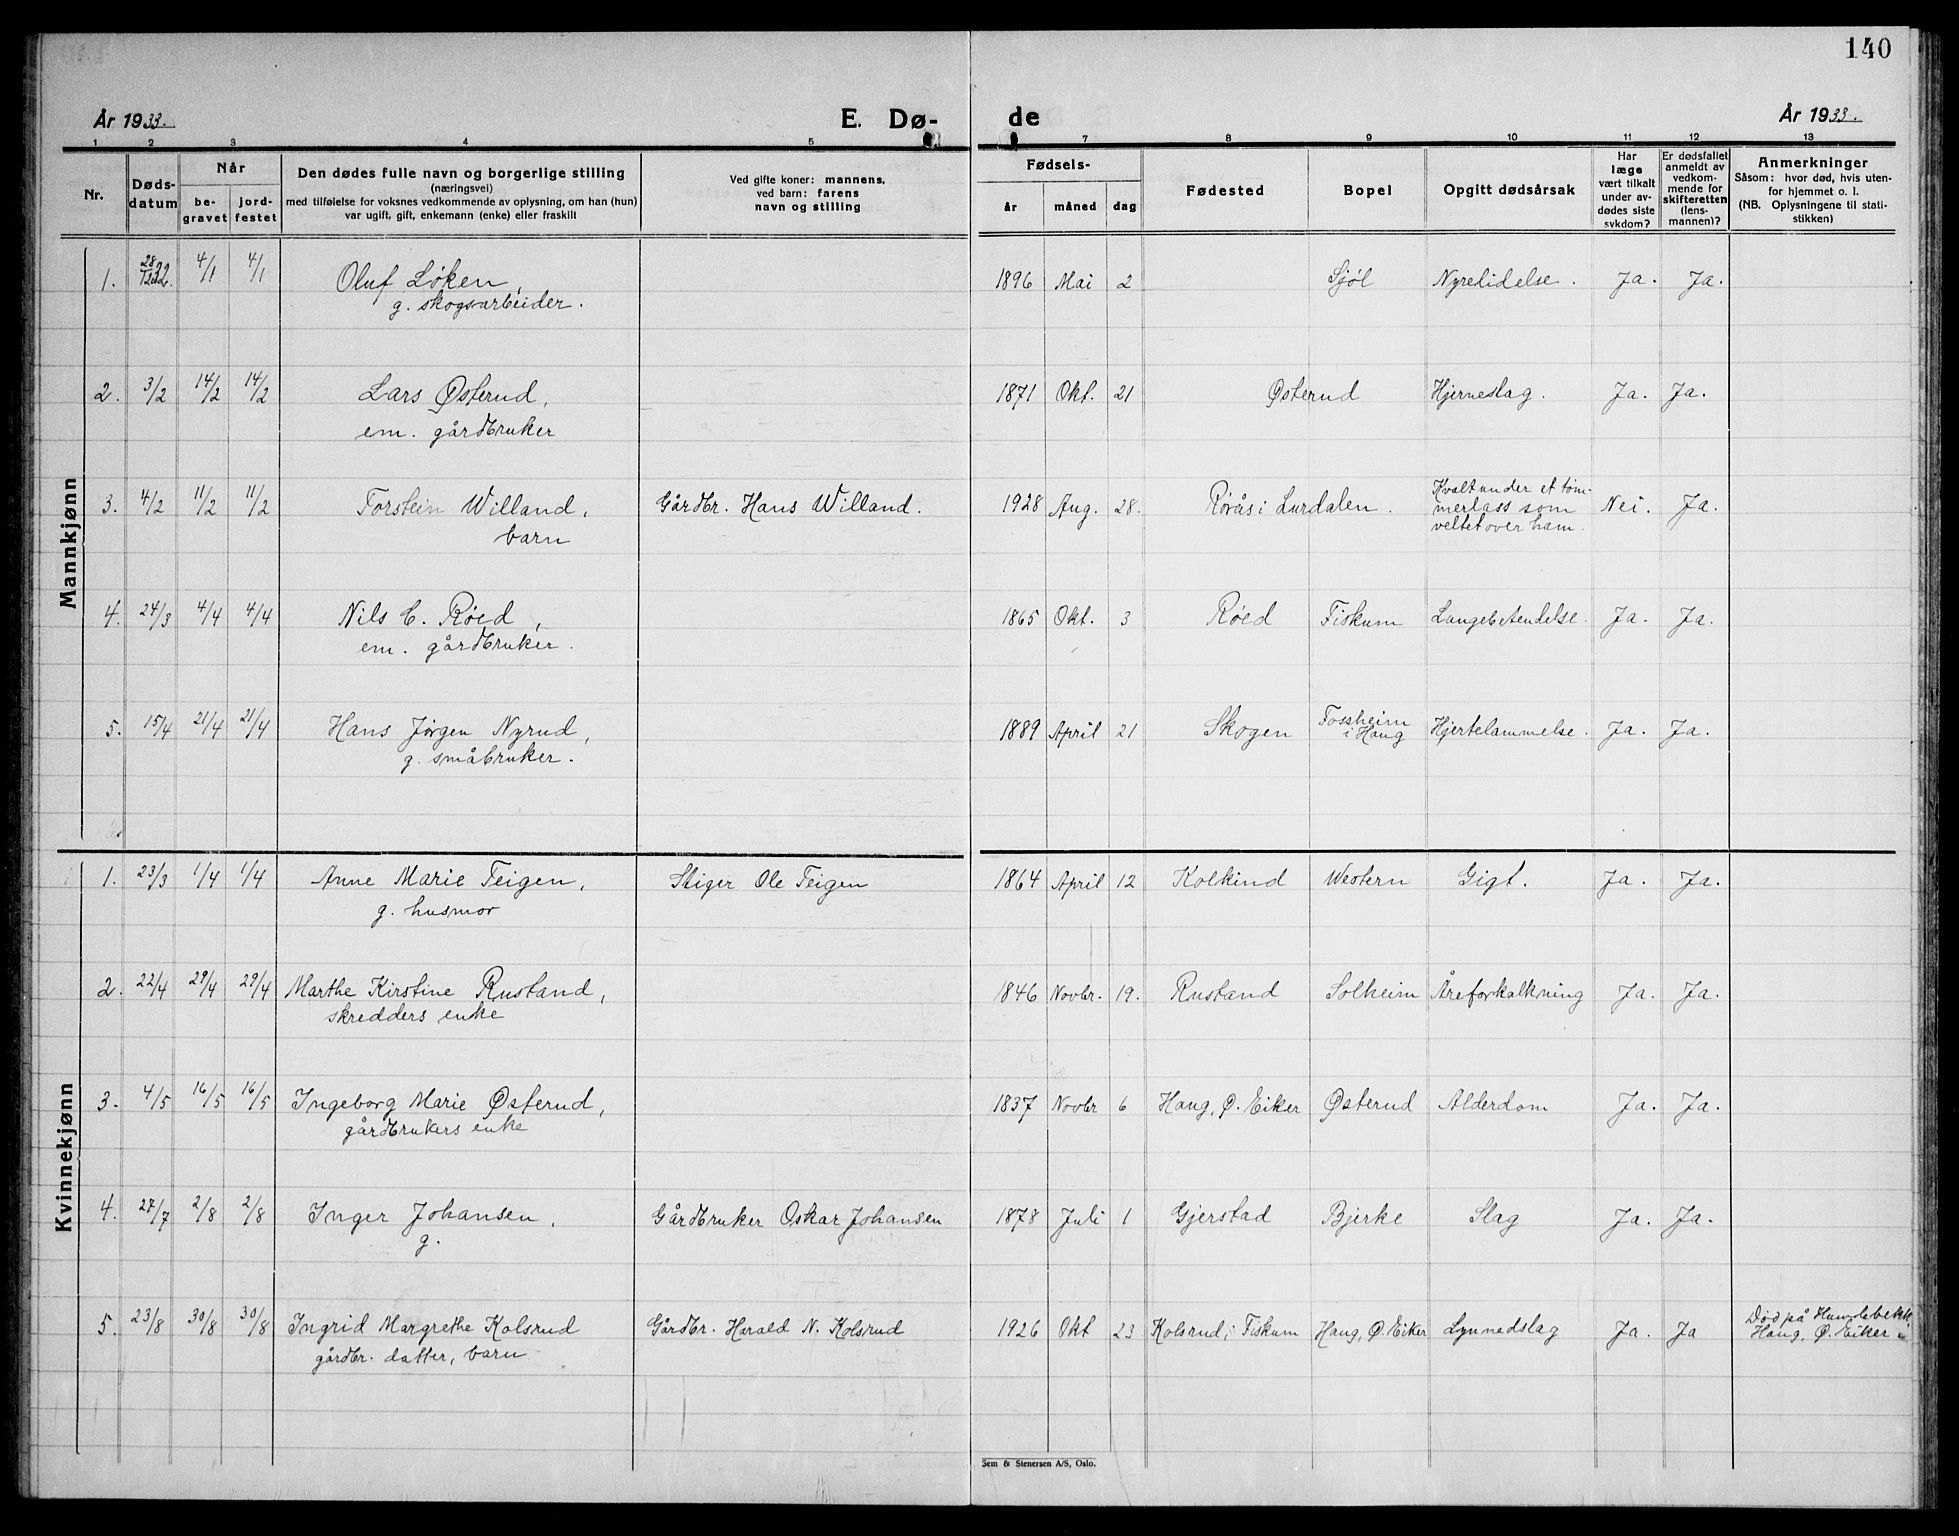 140
År 1933.
E. Dø-
de
År 1933.
1 2 3 4 5 7 8 9 10 11 12 13
Nr.
Døds-
datum
Når
be-
gravet
jord-
festet
Den dødes fulle navn og borgerlige stilling
(næringsvei)
med tilføielse for voksnes vedkommende av oplysning, om han (hun)
var ugift, gift, enkemann (enke) eller fraskilt
Ved gifte koner: mannens,
ved barn: farens
navn og stilling
Fødsels-
år måned dag
Fødested
Bopel
Opgitt dødsårsak
Har
læge
vært tilkalt
under av-
dødes siste
sykdom?
Er dødsfallet
anmeldt av
vedkom-
mende for
skifteretten
(lens-
mannen)?
Anmerkninger
Såsom: hvor død, hvis uten-
for hjemmet o. l.
(NB. Oplysningene til stati-
stikken)
Mannkjønn
1. 28/12 32. 4/1 4/1 Oluf Løken, 1896 Mai 2 Sjøl Nyrelidelse. Ja. Ja.
g. skogsarbeider.
2. 3/2 14/2 14/2 Lars Østerud, 1871 Okt. 21 Østerud Hjerneslag. Ja. Ja.
em. gårdbruker
3. 4/2 11/2 11/2 Torstein Willand, Gårdbr. Hans Willand. 1928 Aug. 28. Rørås i Lurdalen. Kvalt under et tøm-
merlass som
veltet over ham. Nei. Ja.
barn
4. 24/3 4/4 4/4 Nils C. Røed, 1865 Okt. 3 Røed Fiskum Lungebetendelse. Ja. Ja.
em. gårdbruker.
5. 15/4 21/4 21/4 Hans Jørgen Nyrud, 1889 April 21 Skogen Fossheim
i Haug Hjertelammelse. Ja. Ja.
g. småbruker.
Kvinnekjønn
1. 23/3 1/4 1/4 Anne Marie Teigen, Stiger Ole Teigen 1864 April 12 Kolkind Western Gigt. Ja. Ja.
g. husmor
2. 22/4 29/4 29/4 Marthe Kirstine Rustand, 1846 Novbr. 19. Rustand Solheim Åreforkalkning Ja. Ja.
skredders enke
3. 4/5 16/5 16/5 Ingeborg Marie Østerud, 1837 Novbr 6 Haug, Ø. Eiker Østerud Alderdom Ja. Ja.
gårdbrukers enke
4. 27/7 2/8 2/8 Inger Johansen, Gårdbruker Oskar Johansen 1878 Juli 1 Gjerstad Bjerke Slag Ja. Ja.
g.
5. 23/8 30/8 30/8 Ingrid Margrethe Kolsrud Gårdbr. Harald N. Kolsrud 1926 Okt 23 Kolsrud, i Fiskum Haug, Ø. Eiker Lynnedslag Ja. Ja Død på
Haug, Ø. Eiker
gårdbr. datter, barn
Sem & Stenersen A/S, Oslo.